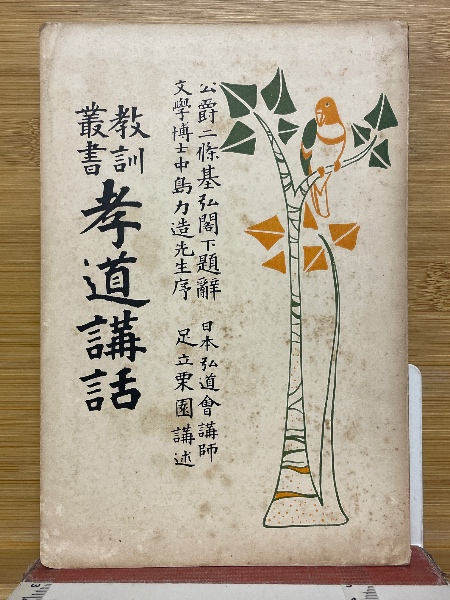 公爵二條基弘閣下題辭
日本弘道會講師
文學博士中島力造先生序
足立栗園講述
教訓
叢書
孝道講話